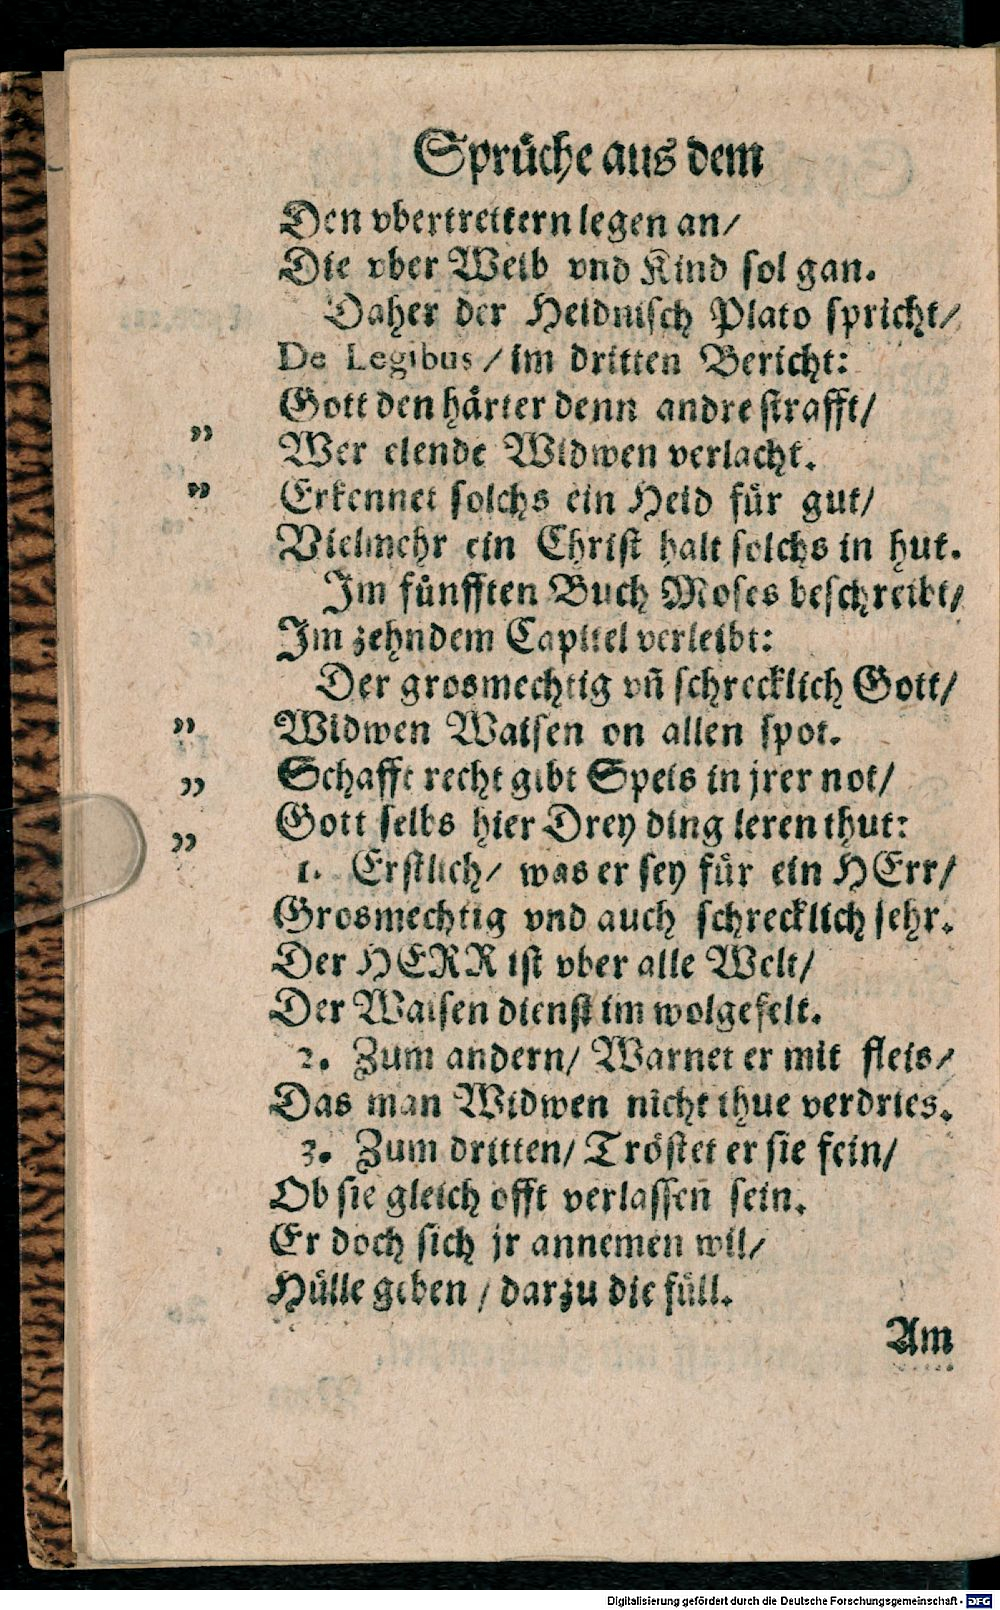 Sprüche aus dem
Den vbertrettern legen an/
Die vber Weib vnd Kind sol gan.
Daher der Heidnisch Plato spricht/
De Legibus / im dritten Bericht:
Gott den härter denn andre strafft/
„ Wer elende Widwen verlacht.
„ Erkennet solchs ein Heid für gut/
Vielmehr ein Christ halt solchs in hut.
Im fünfften Buch Moses beschreibt/
Im zehndem Capitel verleibt:
Der grosmechtig vñ schrecklich Gott/
„ Widwen Waisen on allen spot.
„ Schafft recht gibt Speis in jrer not/
„ Gott selbs hier Drey ding leren thut:
1. Erstlich/ was er sey für ein HErr/
Grosmechtig vnd auch schrecklich sehr.
Der HERR ist vber alle Welt/
Der Waisen dienst im wolgefelt.
2. Zum andern/ Warnet er mit fleis/
Das man Widwen nicht thue verdries.
3. Zum dritten/ Tröstet er sie fein/
Ob sie gleich offt verlassen sein.
Er doch sich jr annemen wil/
Hülle geben / darzu die füll.
Am
Digitalisierung gefördert durch die Deutsche Forschungsgemeinschaft - DFG